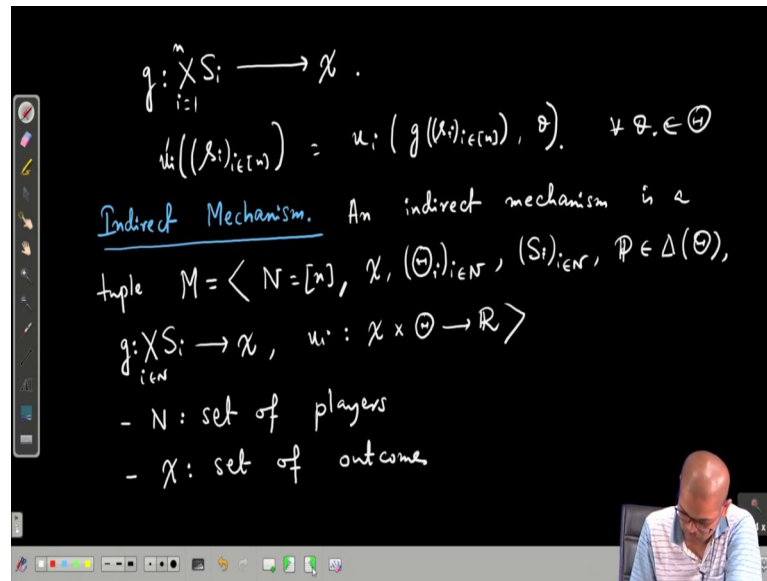 g : n X i=1 Sᵢ ⟶ 𝒳 .
uᵢ((sᵢ)ᵢ∈[n]) = uᵢ ( g((sᵢ)ᵢ∈[n]) , θ). ∀ θ. ∈ Θ
Indirect Mechanism. An indirect mechanism is a
tuple M = < N = [n], 𝒳, (Θᵢ)ᵢ∈N, (Sᵢ)ᵢ∈N, ℙ ∈ Δ(Θ),
g : X i∈N Sᵢ → 𝒳, uᵢ : 𝒳 × Θ → ℝ >
- N : set of players
- 𝒳 : set of outcomes